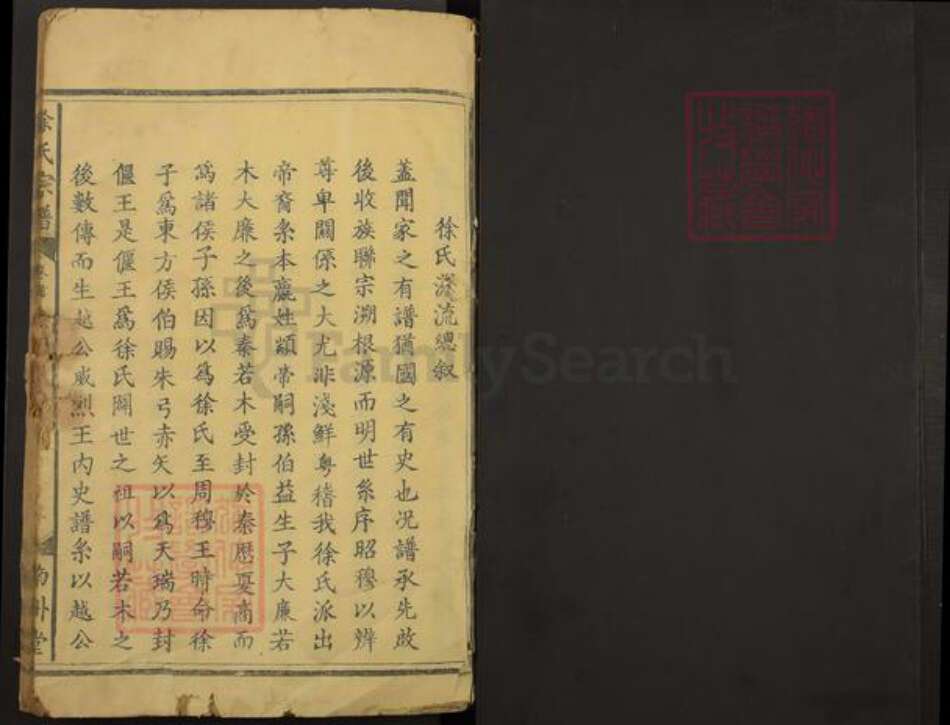 徐氏源流總叙
蓋聞家之有譜猶國之有史也况譜承先啟
後收族聯宗溯根源而明世系序昭穆以辨
尊卑關係之大尤非淺鮮粤稽我徐氏派出
帝裔系本嬴姓顓帝嗣孫伯益生子大廉若
木大廉之後爲秦若木受封於秦歷夏商而
爲諸侯子孫因以爲徐氏至周穆王時命徐
子爲東方侯伯賜朱弓赤矢以爲天瑞乃封
偃王是偃王爲徐氏開世之祖以嗣若木之
後數傳而生越公威烈王内史譜系以越公
徐氏宗譜
南州堂
FamilySearch